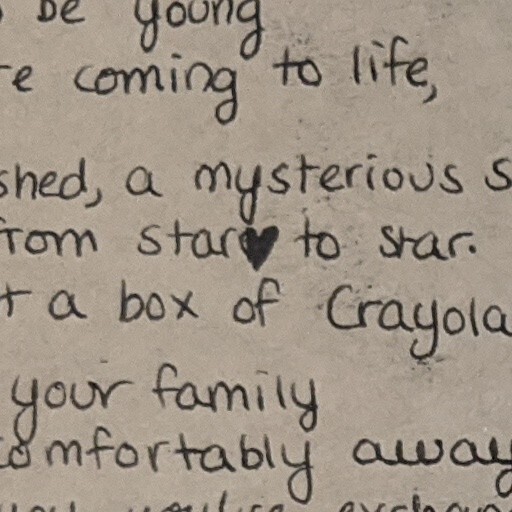 be young
coming to life,
a mysterious
from star♥ to star.
a box of Crayola
your family
comfortably away